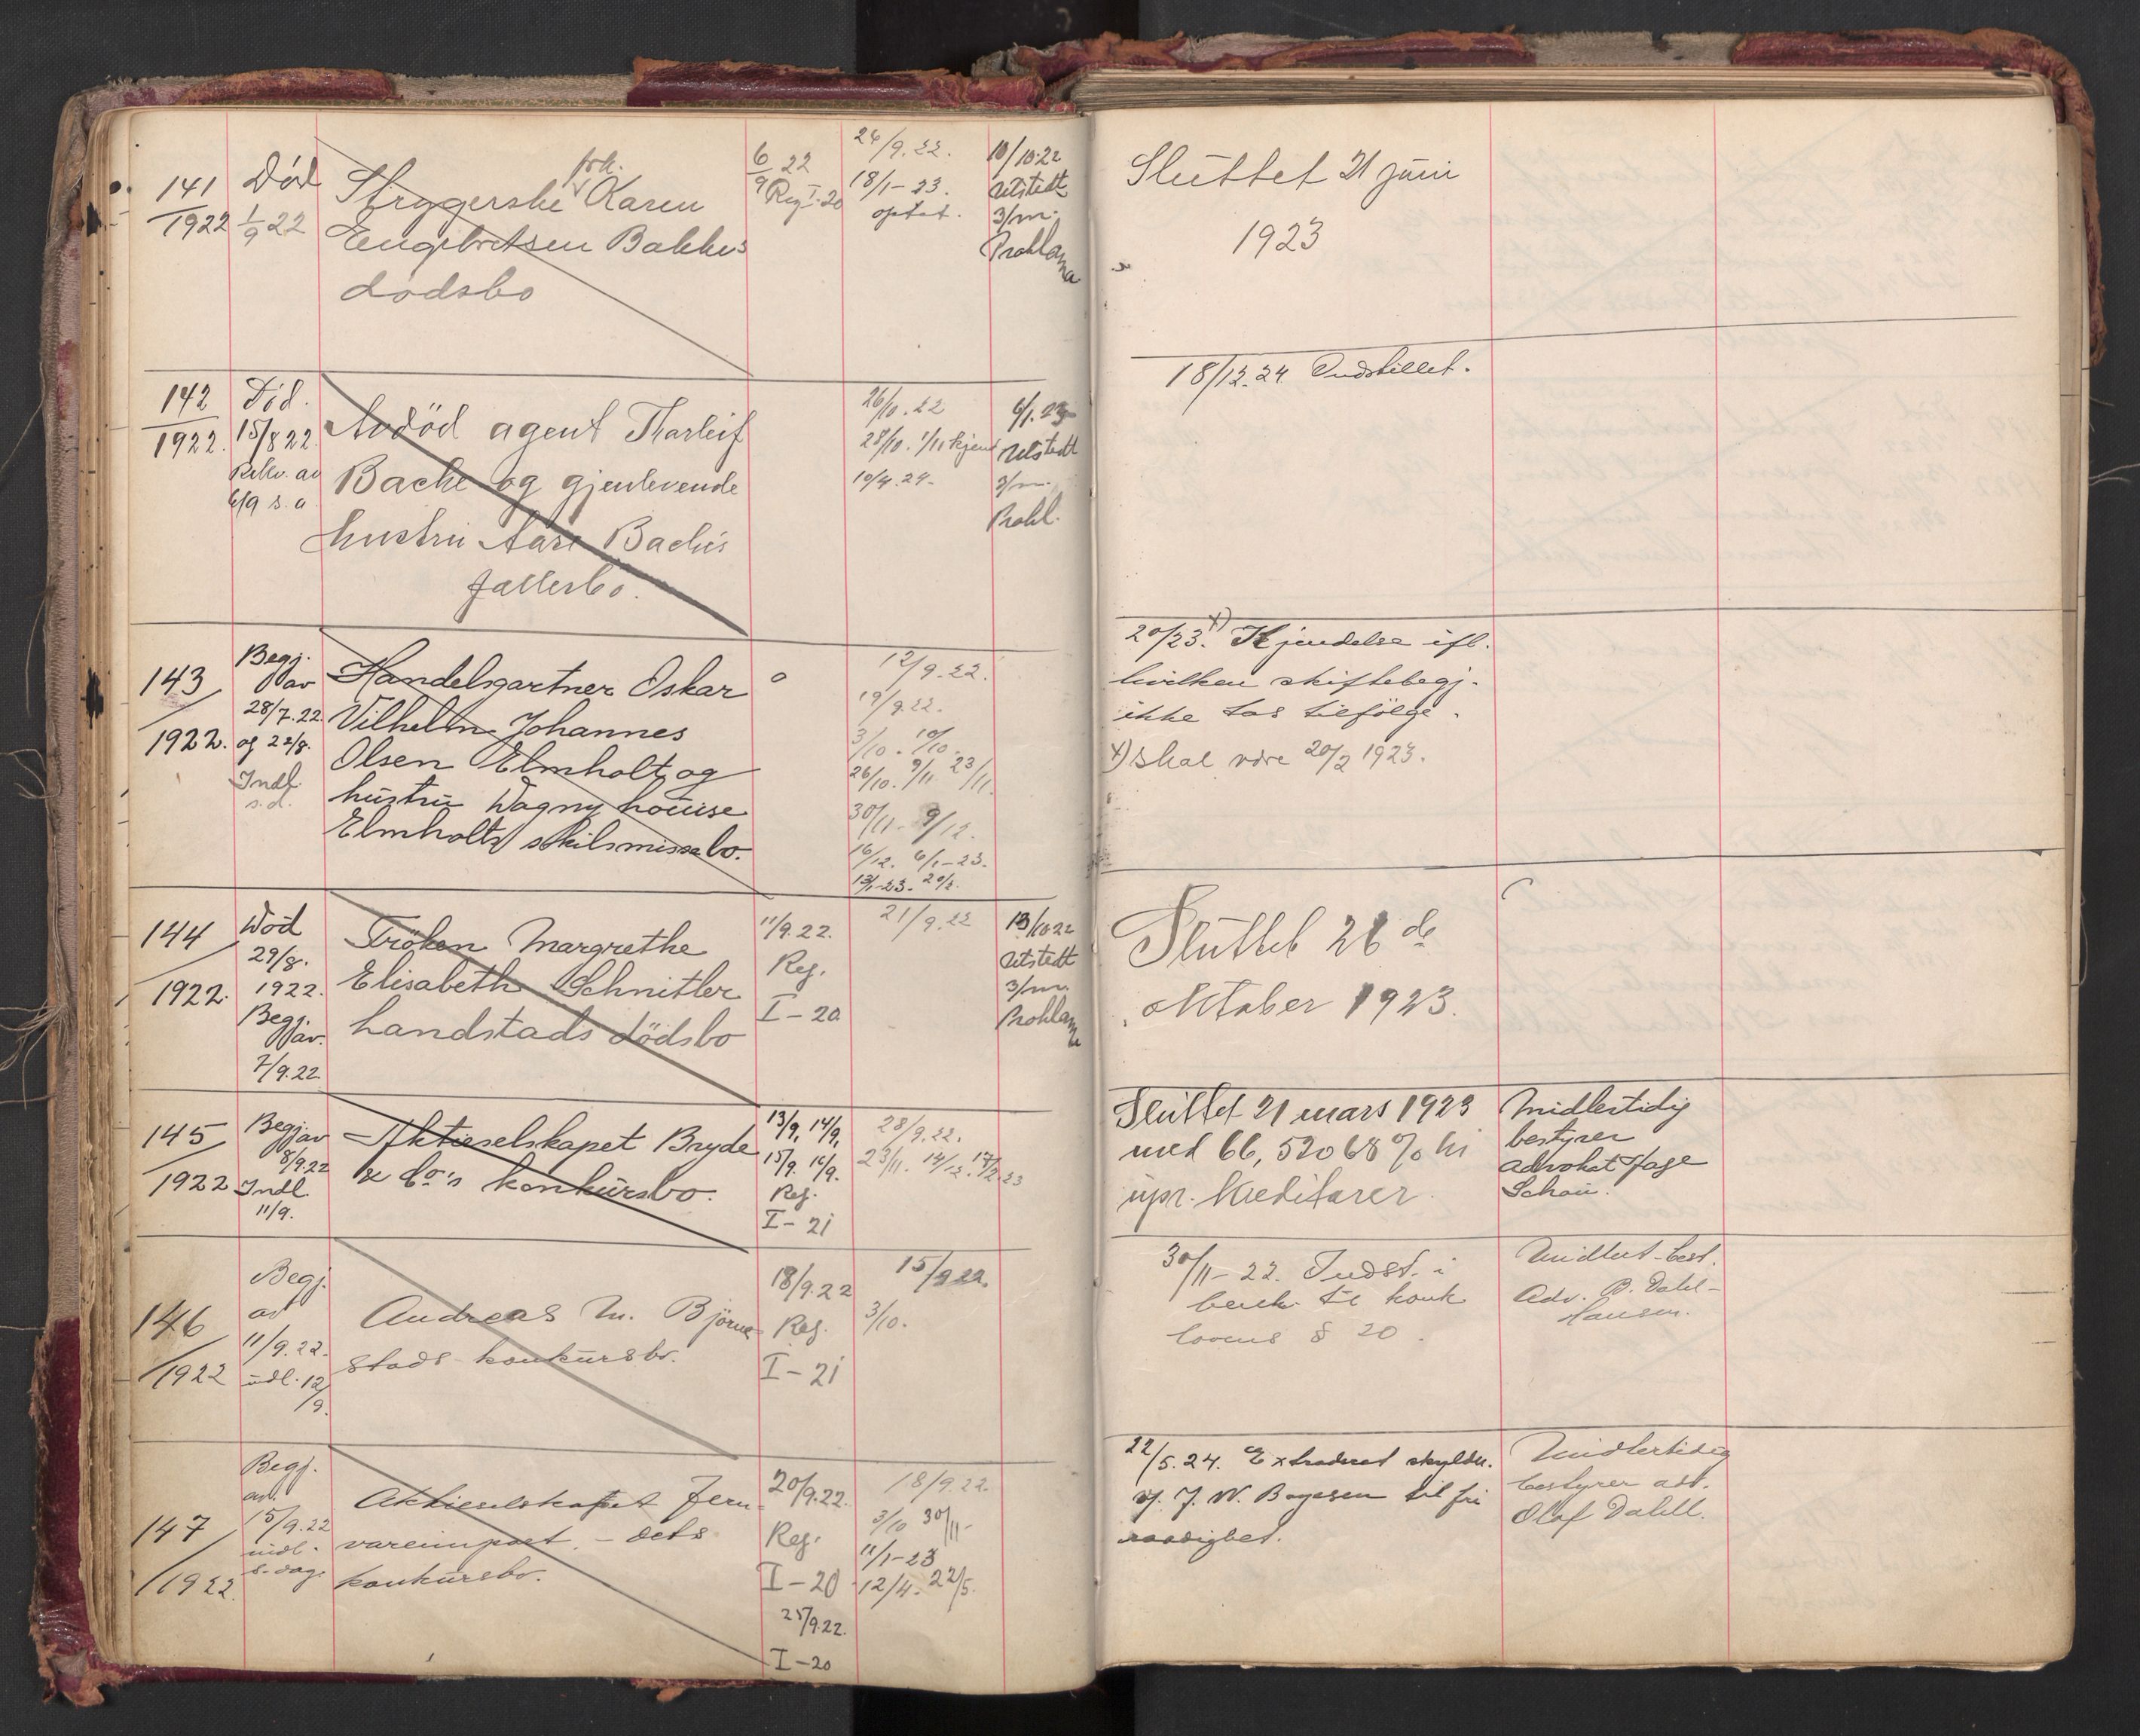 141
1922
Död
1/9 22
frk.
Strygerske Karen
Engebretsen Bakkes
dödsbo
6/9 22
Reg I-20
26/9.22.
18/1-23.
optat.
10/10.22
Utstedt
3/m.
Proklama
Sluttet 21 juni
1923
142
1922.
Död.
15/8 22.
Rekv. av
6/9 s.a.
Avdöd agent Tharleif
Bache og gjenlevende
hustru Aase Bache's
fællesbo.
26/10.22
28/10. 1/11 kjend
10/4.24.
6/1.23
Utstedt
3/m.
Prokl.
18/12.24 Indstillet.
143
1922.
Begj.
av
28/7.22.
og 22/8.
Indl.
s.d.
Handelsgartner Oskar
Vilhelm Johannes
Olsen Elmholt og
hustru Dagny Louise
Elmholts skilsmissebo.
12/9.22.
19/9.22.
3/10. 10/10.
26/10. 9/11 23/11.
30/11- 9/12.
16/12. 6/1-23.
13/1-23. 20/2.
20/23. x) Kjendelse ifl.
hvilken skiftebegj.
ikke tas tilfölge.
x) skal være 20/2 1923.
144
1922.
Död
29/8.
1922.
Begj.
av.
7/9.22
Fröken Margrethe
Elisabeth Schnitler
Landstads dödsbo
11/9.22.
Reg.
I-20
21/9.22
13/10 22
Utstedt
3/m.
Proklama
Sluttet 26 de
oktober 1923.
145
1922
Begj av
8/9.22
Indl.
11/9.
Aktieselskapet Bryde
& Co's konkursbo.
13/9, 14/9,
15/9. 16/9.
Reg.
I-21
28/9.22.
23/11. 14/12. 17/2.23
Sluttet 21 mars 1923
med 66,52068 % til
upr. kreditorer.
Midlertidig
bestyrer
advokat Aage
Schou.
146
1922
Begj.
av
11/9.22.
indl. 12/9.
Andreas M. Björne-
stads konkursbo.
18/9.22
Reg.
I-21
15/9 22.
3/10.
30/11-22. Indst. i
henh. til konk
lovens § 20.
Midlert. best.
Adv. B. Dahl-
Hansen.
147
1922.
Begj.
av.
15/9.22
indl.
s. dag.
Aktieselskapet Jern-
vareimport. - dets
konkursbo.
20/9.22.
Reg.
I-20
25/9.22.
I-20
18/9.22.
3/10 30/11-
11/1-23
12/4. 22/5.
22/5.24. Extraderet skyldn.
v/ J. W. Bogesen til fri
raadighet.
Midlertidig
bestyrer adv.
Olaf Dahll.